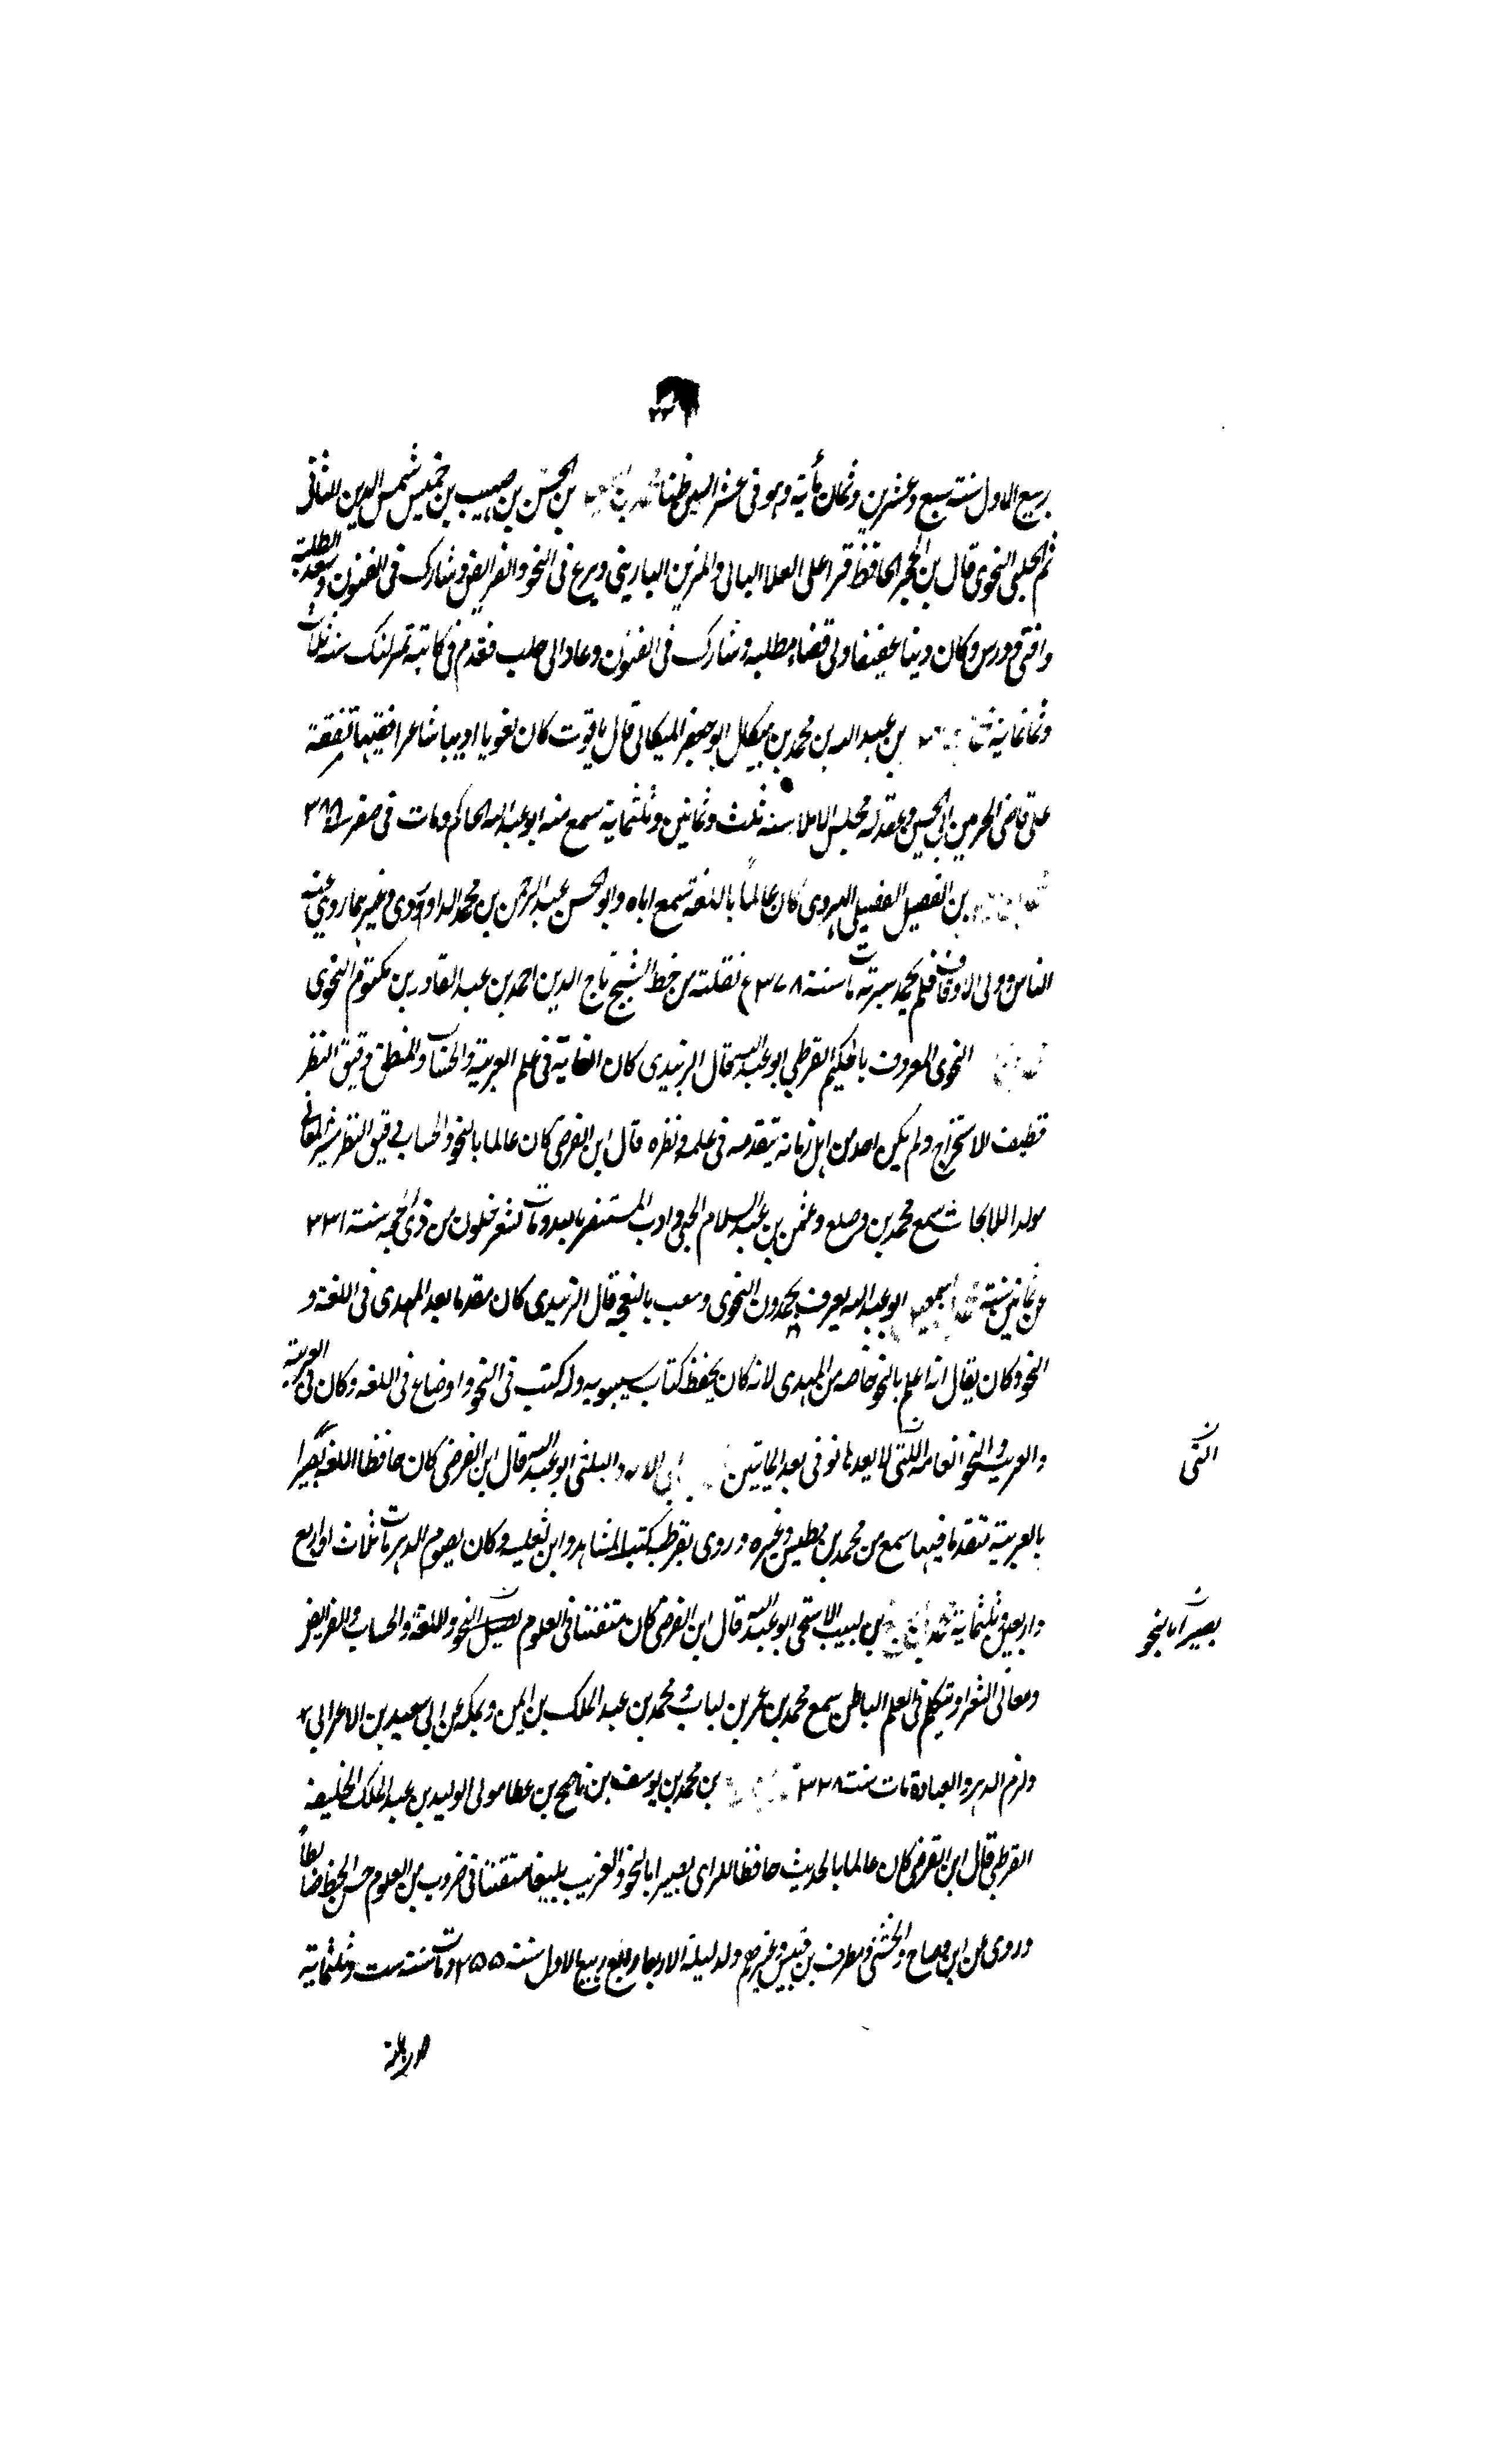 ربيع الاول سنة سبع وعشرين وثمان مأية وهو في عشر السبعين ظنا محمد بن بن الحسن بن حبيب بن خميس شمس الدين
ثم الحلبي النحوي قال بن الحجر الحافظ قرا على العلا البابي والمزين الباريني وبرع في النحو والفرايض وشارك في الفنون وشغل الطلبة
وافتى ودرس وكان دينا عفيفا ولي قضاء مطلبه وشارك في الفنون وعاد الى حلب فقدم في كاتبة تمرلنك سنة ثلاث
وثمانماية بن عبد الله بن محمد بن ميكال ابو جعفر الميكالي قال ياقوت كان لغويا اديبا شاعرا فقيها تفقه
على قاضي الحرمين ابي الحسين وعقد له مجلس الاملا سنة ثلث وثمانين وثلثماية سمع منه ابو عبد الله الحاكم ومات في صفر سنة ٣٨٨
بن الفضيل الفضيلي الهروي كان عالماً باللغة سمع اباه وابو الحسن عبد الرحمن بن محمد الداوودي وغيرهما روى عنه
الناس وولي الاوقاف فلم يحمد سيرته مات سنة نقلته من خط الشيخ تاج الدين احمد بن عبد القادر بن مكتوم النحوي
النحوي المعروف بالحكيم القرطبي ابو عبد الله قال الزبيدي كان الغاية في علم العربية والحساب والمنطق دقيق النظر
لطيف الاستخراج ولم يكن احد من اهل زمانه يتقدمه في علمه ونظره قال ابن الفرضي كان عالما بالنحو والحساب دقيق النظر مثير المعاني
مولدا للابحاث سمع محمد بن وضاح وعثمن بن عبد السلام وادب المستنصر بالله ومات لعشر خلون من ذي الحجه سنة ٣٣١
عن ثمانين سنة محمد بن اسمعيل ابو عبد الله يعرف بحمدون النحوي ويلقب بالنعجه قال الزبيدي كان مقدما بعد المهدي في اللغة و
النحو وكان يقال انه اعلم بالنحو خاصه من المهدي لانه كان يحفظ كتاب سيبويه وله كتب في النحو واوضاع في اللغة وكان في العربية
والعريب والنحو الغاية اللتي لا بعدها توفي بعد المايتين ابي الاسود البلنسي ابو عبد الله قال ابن الفرضي كان حافظا للغة بصيرا
بالعربية متقدما فيها سمع من محمد بن فطيس وغيره وروى بقرطبه كتب المشاهد وابن ثعلبه وكان يصوم الدهر مات ثلاث او اربع
واربعين وثلثماية محمد بن بن لبيب الاستجي ابو عبد الله قال ابن الفرضي كان متفننا في العلوم بصير النحو واللغة والحساب والفرايض
ومعاني الشعر ويتكلم في العلم الباطن سمع محمد بن عمر بن لبابه ومحمد بن عبد الملك بن ايمن وبمكه من ابي سعيد بن الاعرابي
ولزم الزهد والعبادة مات سنة ٣٣٨ بن محمد بن يوسف بن ناصح بن عطا مولى الوليد بن عبد الملك الخليفه
القرطبي قال ابن الفرضي كان عالما بالحديث حافظا للراي بصيرا بالنحو والغريب بليغا متفننا في ضروب من العلوم حسن الخط ضابطاً
وروى عن ابن وضاح والخشني ومطرف بن قيس وغيرهم ولد ليلة الاربعا ربيع الاول سنة ٢٥٥ ومات سنة ست وثلثماية
التي
بصيرا بالنحو